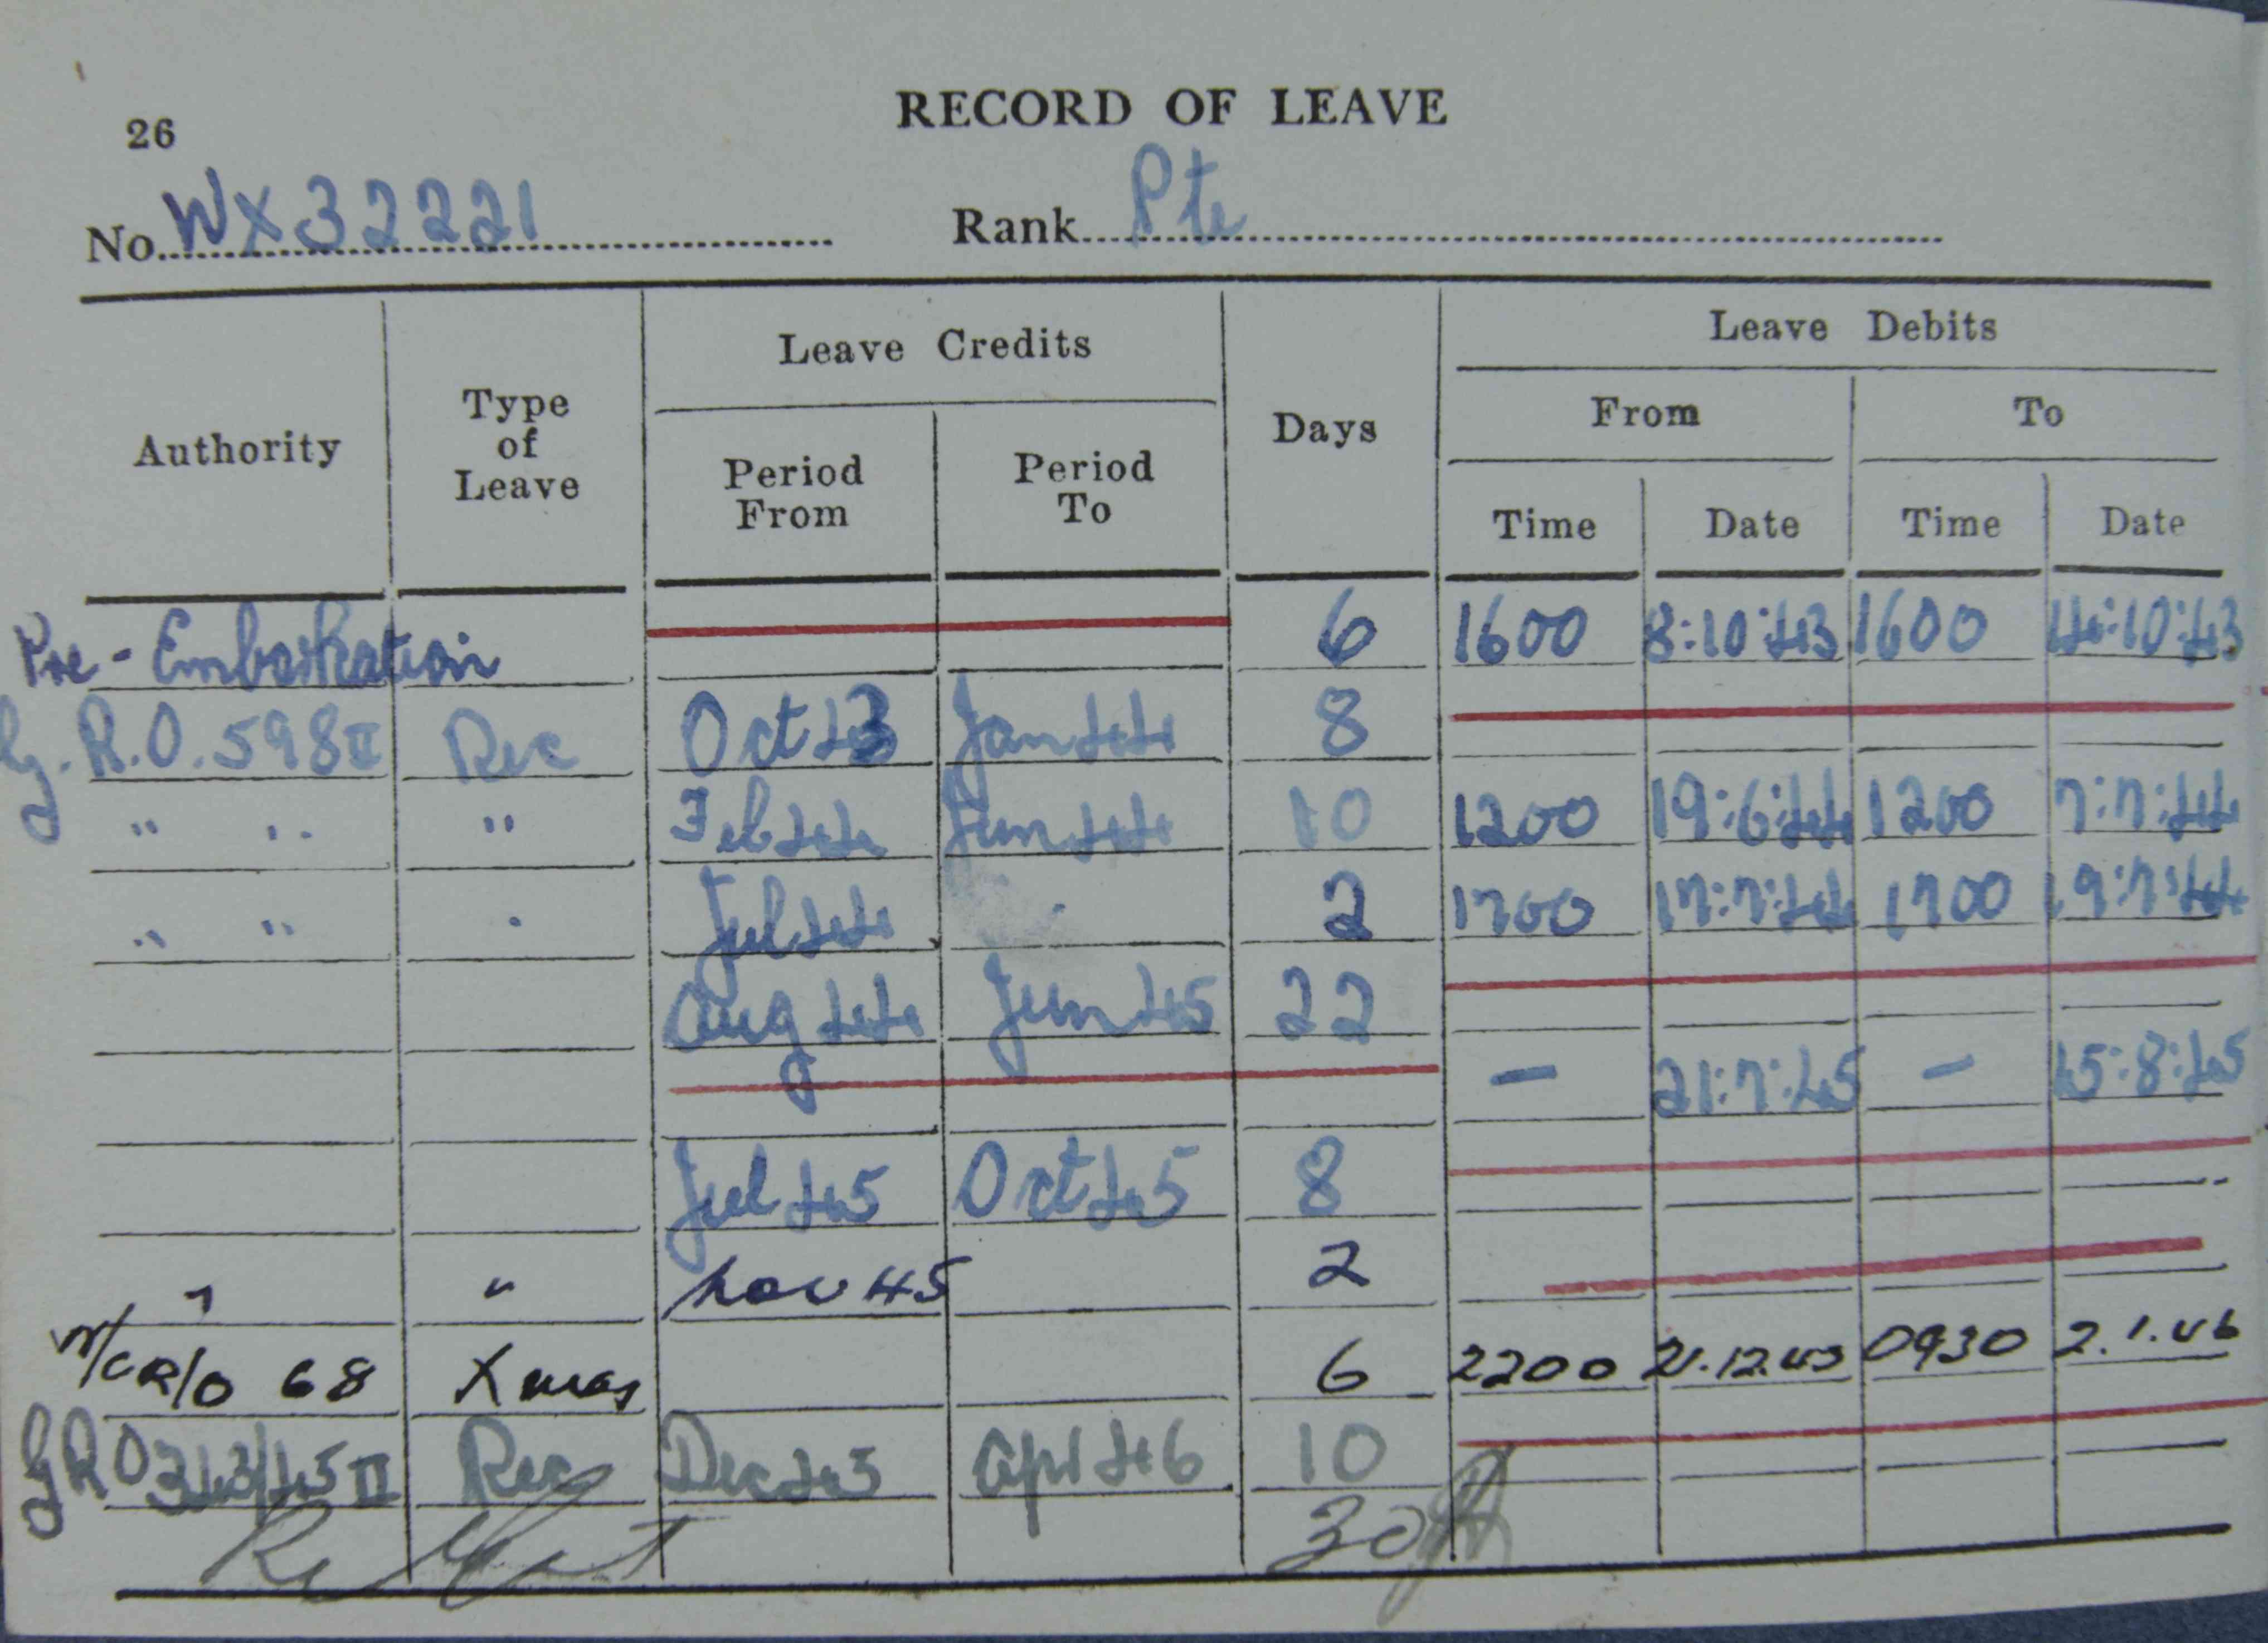 26
RECORD OF LEAVE
No. WX32221 Rank Pte
Authority Type of Leave Leave Credits Period From Period To Days Leave Debits From Time Date To Time Date
Pre-Embarkation 6 1600 8:10:43 1600 14:10:43
G.R.O. 598 II Rec Oct 43 Jan 44 8
" " " Feb 44 Jun 44 10 1200 19:6:44 1200 7:7:44
" " " Jul 44 2 1700 17:7:44 1700 19:7:44
Aug 44 Jun 45 22
- 21:7:45 - 15:8:45
Jul 45 Oct 45 8
" " Nov 45 2
R/O 68 Xmas 6 2200 21.12.45 0930 2.1.46
GRO 343/45 II Rec Dec 45 Apl 46 10
30